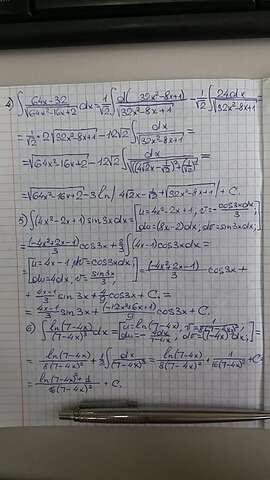 4) ∫ (64x-32)/√(64x²-16x+2) dx = 1/√2 ∫ d(32x²-8x+1)/√(32x²-8x+1) - 1/√2 ∫ 24dx/√(32x²-8x+1) =
= 1/√2 · 2√(32x²-8x+1) - 12√2 ∫ dx/√(32x²-8x+1) =
= √(64x²-16x+2) - 12√2 ∫ dx/√((4√2x - √2/2)²+(√2/2)²) =
= √(64x²-16x+2) - 3 ln|4√2x - √2/2 + √(32x²-8x+1)| + C.
5) ∫(4x²-2x+1) sin3x dx = [u=4x²-2x+1, v=-cos3x/3; du=(8x-2)dx, dv=sin3x dx] =
= (-4x²+2x-1)/3 cos3x + 2/3 ∫(4x-1) cos3x dx =
= [u=4x-1, dv=cos3x dx; du=4dx, v=sin3x/3] = (-4x²+2x-1)/3 cos3x +
+ (4x-1)/3 sin3x + cos3x + C. =
= (4x-1)/3 sin3x + (-12x²+6x+1)/9 cos3x + C.
6) ∫ ln(7-4x)/(7-4x)³ dx = [u=ln(7-4x), v=1/8(7-4x)²; du=-4dx/(7-4x), dv=dx/(7-4x)³] =
= ln(7-4x)/8(7-4x)² + 1/2 ∫ dx/(7-4x)³ = ln(7-4x)/8(7-4x)² + 1/16(7-4x)² + C =
= (ln(7-4x)²+1)/16(7-4x)² + C.